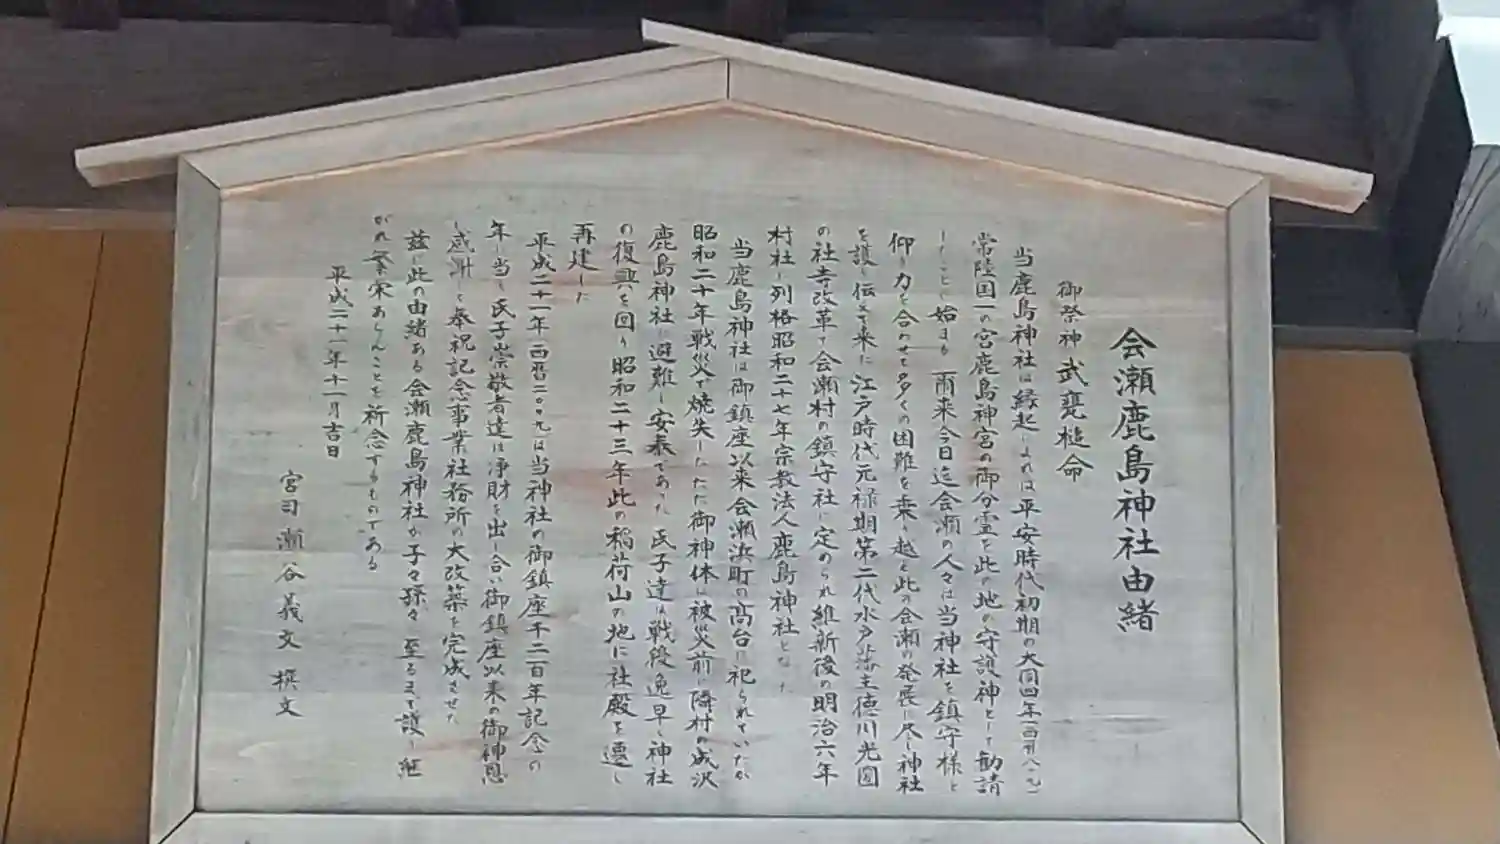 会瀬鹿島神社由緒
御祭神 武甕槌命
当鹿島神社は縁起によれば平安時代初期の大同四年(西暦八〇九)
常陸国一の宮鹿島神宮の御分霊を此の地の守護神として勧請
したことに始まる 爾来今日迄会瀬の人々は当神社を鎮守様と
仰ぎ力を合わせて多くの困難を乗り越え此の会瀬の発展に尽し神社
を護り伝えて来た 江戸時代元禄期第二代水戸藩主徳川光圀
の社寺改革で会瀬村の鎮守社に定められ維新後の明治六年
村社に列格昭和二十七年宗教法人鹿島神社となった
当鹿島神社は御鎮座以来会瀬浜町の高台に祀られていたが
昭和二十年戦災で焼失した ただ御神体は被災前に隣村の成沢
鹿島神社に避難し安泰であった 氏子達は戦後逸早く神社
の復興を図り昭和二十三年此の稲荷山の地に社殿を遷し
再建した
平成二十一年西暦二〇〇九は当神社の御鎮座千二百年記念の
年に当り氏子崇敬者達は浄財を出し合い御鎮座以来の御神恩
に感謝し奉祝記念事業社務所の大改築を完成させた
茲に此の由緒ある会瀬鹿島神社が子々孫々に至るまで護り継
がれ繁栄あらんことを祈念するものである
平成二十一年十一月吉日
宮司 瀬谷義文 撰文